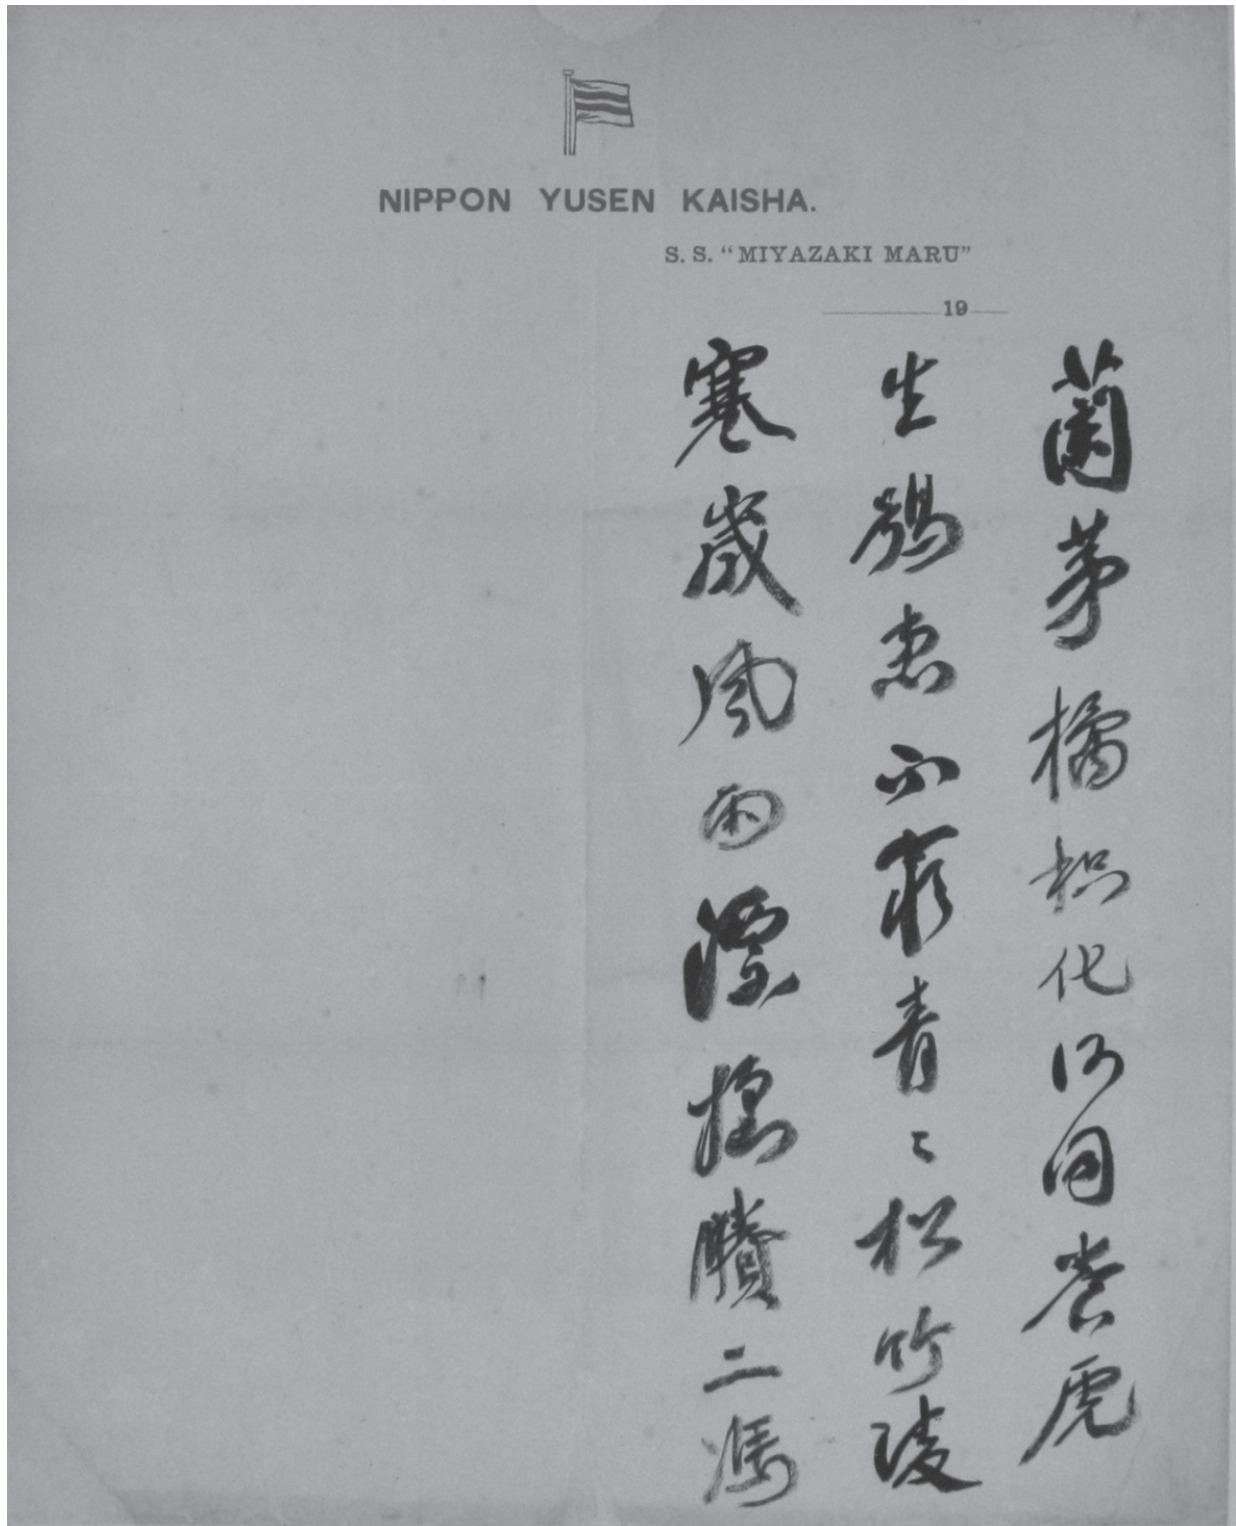 NIPPON YUSEN KAISHA.
S. S. "MIYAZAKI MARU"
19
蘭茅橘枳化何同养虎
生患不窮青々松竹陵
寒歲風雨漂搖賸二馮